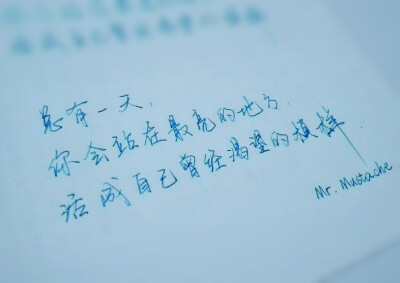 总有一天,
你会站在最亮的地方,
活成自己曾经渴望的模样.
Mr. Mustache